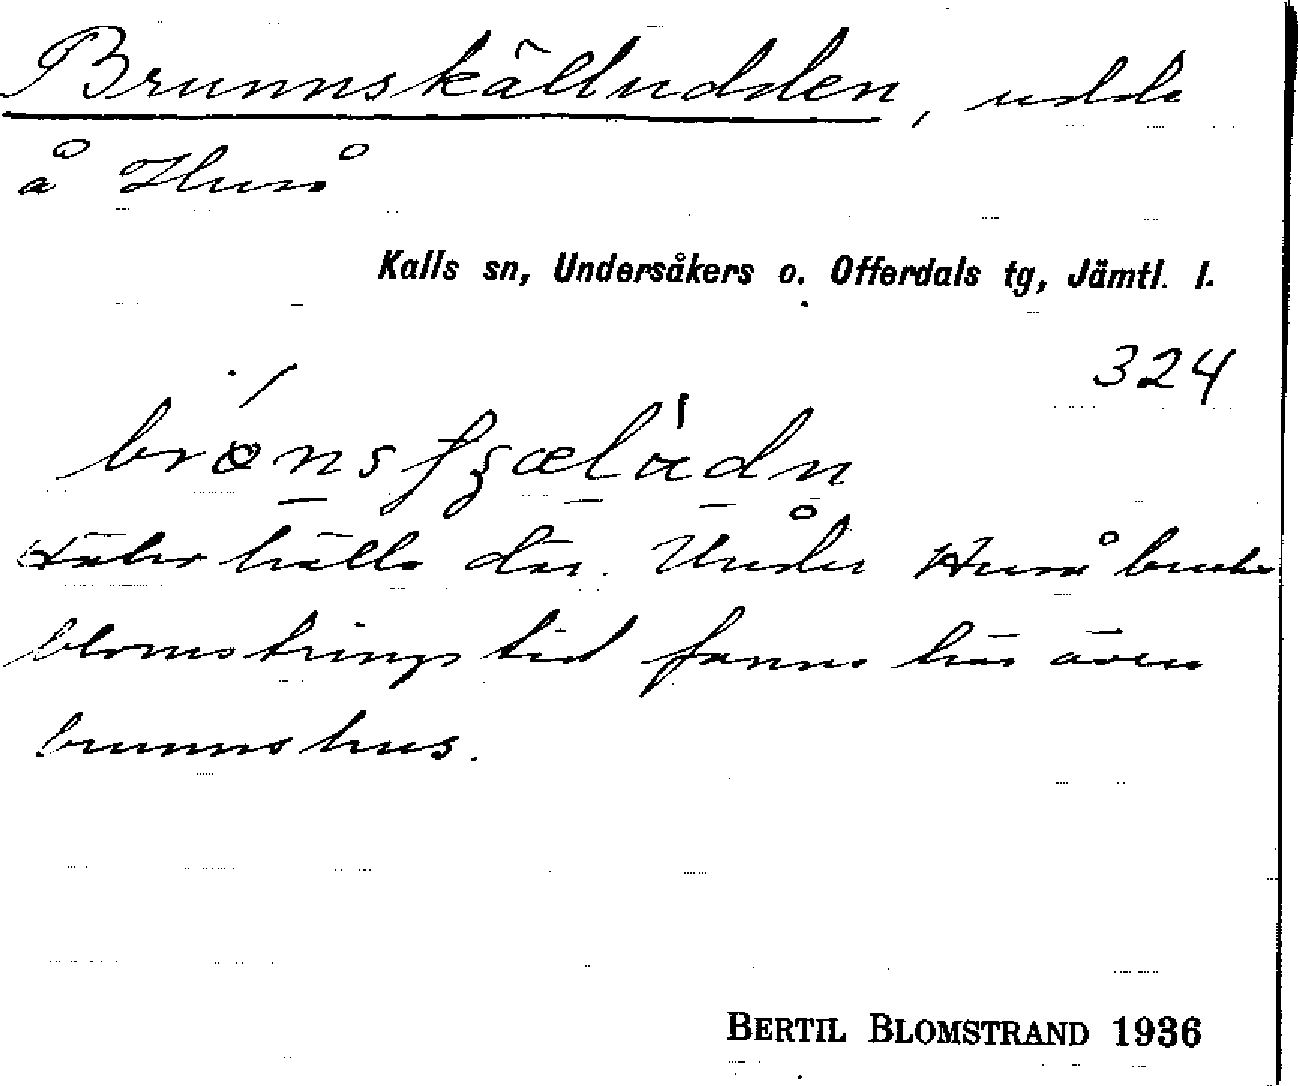 Brunnskälludden, udde
å Huså
Kalls sn, Undersåkers o. Offerdals tg, Jämtl. l.
324
brønsfʒælådn
källa där. Under Huså bruks
blomstringstid fanns här även
brunnshus.
BERTIL BLOMSTRAND 1936